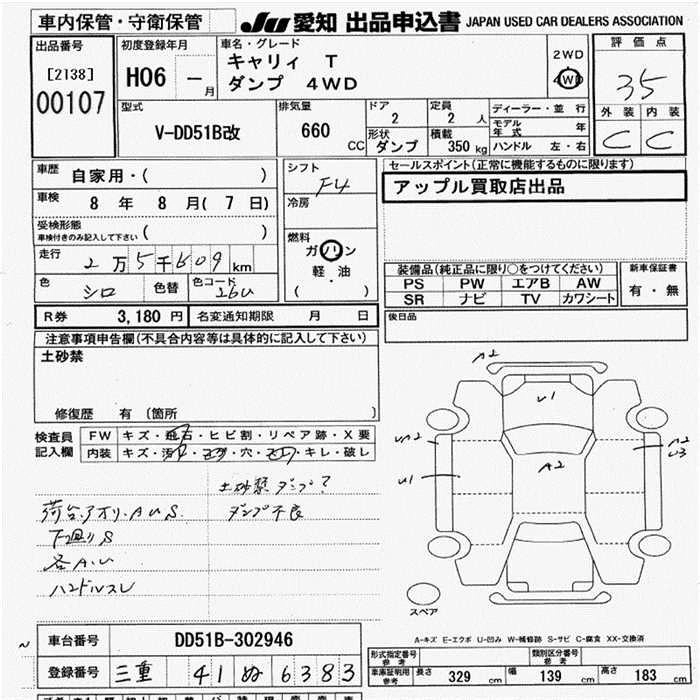 車内保管・守衛保管
JU 愛知 出品申込書 JAPAN USED CAR DEALERS ASSOCIATION
出品番号
[2138]
00107
初度登録年月
H06 ー 月
車名・グレード
キャリィ T
ダンプ 4WD
2WD
4WD
評価点
35
外装 内装
C C
型式
V-DD51B改
排気量
660 CC
ドア
2
定員
2 人
形状
ダンプ
積載
350 kg
ディーラー・並行
モデル年式 年
ハンドル 左・右
車歴
自家用・( )
車検
8 年 8 月( 7 日)
受検形態
車検付きのみ記入して下さい ( )
走行
2万5千609 km
色
シロ
色替
色コード
26U
シフト
F4
冷房
燃料
ガソリン
軽・油
( )
セールスポイント(正常に機能するものに限ります)
アップル買取店出品
装備品(純正品に限り○をつけてください)
PS PW エアB AW
SR ナビ TV カワシート
新車保証書
有・無
R券 3,180 円 名変通知期限 月 日
後日品
注意事項申告欄(不具合内容等は具体的に記入して下さい)
土砂禁
修復歴 有 〔箇所 〕
検査員
記入欄
FW キズ・飛石・ヒビ割・リペア跡・X要
内装 キズ・汚れ・コゲ・穴・スレ・キレ・破レ
土砂禁ダンプ?
荷台アオリ.A U S.
ダンプ不良
下廻りS
各A.U
ハンドルスレ
A2
U1
A2
A2
U3
U1
A2
スペア
A-キズ E-エクボ U-凹み W-補修跡 S-サビ C-腐食 XX-交換済
車台番号 DD51B-302946
登録番号 三重 41 ぬ 6383
形式指定番号
参考
類別区分番号
参考
車庫証明用
参考
長さ 329 cm 幅 139 cm 高さ 183 cm